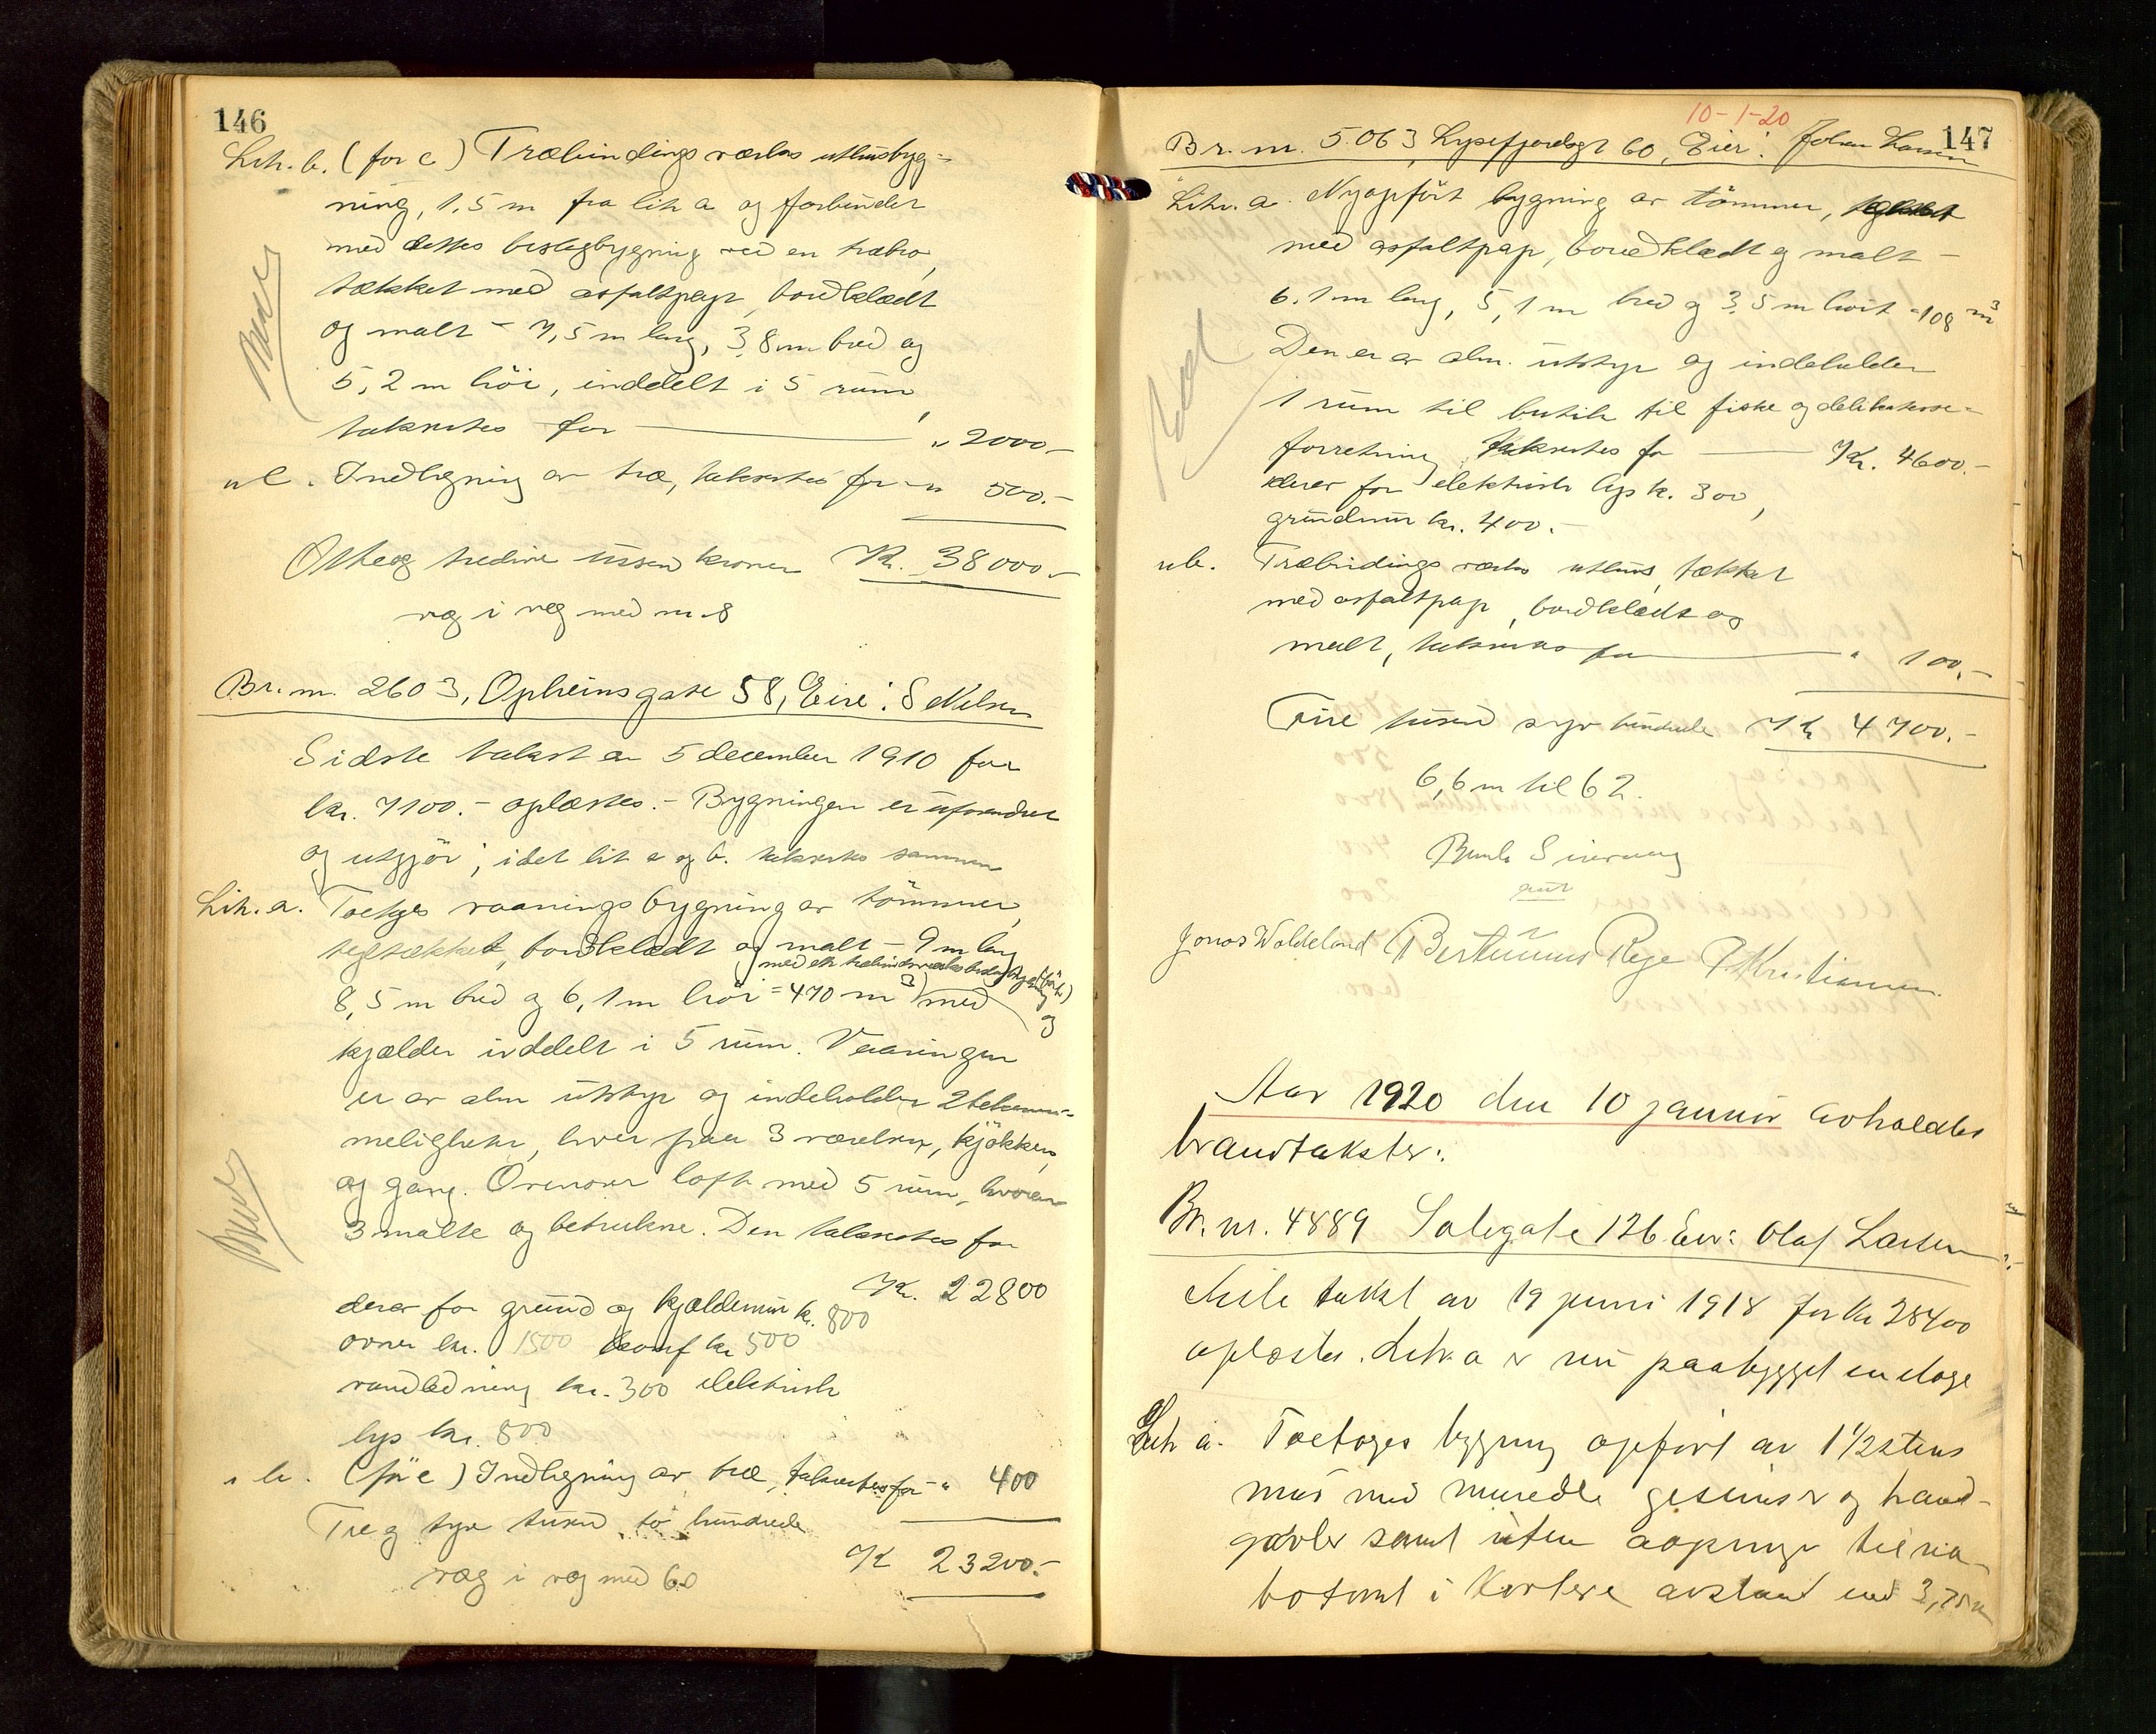 146
Litr. b. (for c) Træbindingsværks uthusbyg=
ning, 1,5 m fra litr a og forbundet
med dettes beslagbygning ved en træbro,
tækket med asfaltpap, bordklædt
og malt - 7,5 m lang, 3,8 m bred og
5,2 m höi, inddelt i 5 rum,
takseres for " 2000.-
" c. Indhegning av træ, takseres for - " 500.-
Otte og tredive tusen kroner Kr. 38000.-
væg i væg med nr 8
Br. nr. 2603, Opheimsgate 58, Eier: S Nilsen
Sidste takst av 5 december 1910 for
kr. 7100.- oplæstes. - Bygningen er uforandret
og utgjör; idet lit a og b. takseres sammen
Litr. a. Toetages vaaningsbygning av tömmer,
tegltækket, bordklædt og malt - 9 m lang
8,5 m bred og 6,1 m höi = 470 m3) med
og
kjælder inddelt i 5 rum. Vaaningen
er av alm utstyr og indeholder 2 bekvem=
meligheter, hver paa 3 værelser, kjökken,
og gang. Ovenover loft med 5 rum, hvorav
3 malte og betrukne. Den takseres for
Kr. 22800
derav for grund og kjældermur kr. 800
ovner kr. 1500 komf kr 500
vandledning kr. 300 elektrisk
lys kr. 800
" b. (för c) Indhegning av træ, takseres for - " 400
Tre og tyve tusen to hundrede
Kr 23200.-
væg i væg med 60
10-1-20
147
Br. nr. 5063, Lysefjordsgt 60, Eier: Johan Larsen
Litr. a. Nyopfört bygning av tömmer, tækket
med asfaltpap, bordklædt og malt -
6,1 m lang, 5,1 m bred og 3,5 m höit = 108 m3
Den er av alm. utstyr og indeholder
1 rum til butik til fiske og delikatesse=
forretning, takseres for Kr. 4600.-
derav for elektrisk lys kr. 300,
grundmur kr. 400.-
" b. Træbindingsværks uthus, tækket
med asfaltpap, bordklædt og
malt, takseres for " 100.-
Fire tusen syv hundrede Kr 4700.-
6,6 m til 62.
Jonas Waldeland Bertinius Rege P Kristiansen
Aar 1920 den 10 januar avholdtes
brandtakster:
Br. nr. 4889 Solegate 126 Eier: Olaf Larsen
Sidste takst av 19 juni 1918 for kr 28400
oplæstes. Litr. a er nu paabygget en etage
Litr a. Toetages bygning opfört av 1 1/2 stens
mur med murede gesimser og brand-
gavler samt uten aapninger til na-
botomt i kortere avstand end 3,75 m